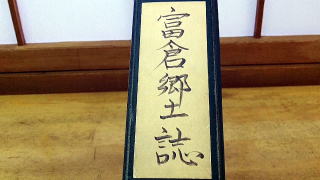 富倉郷土誌